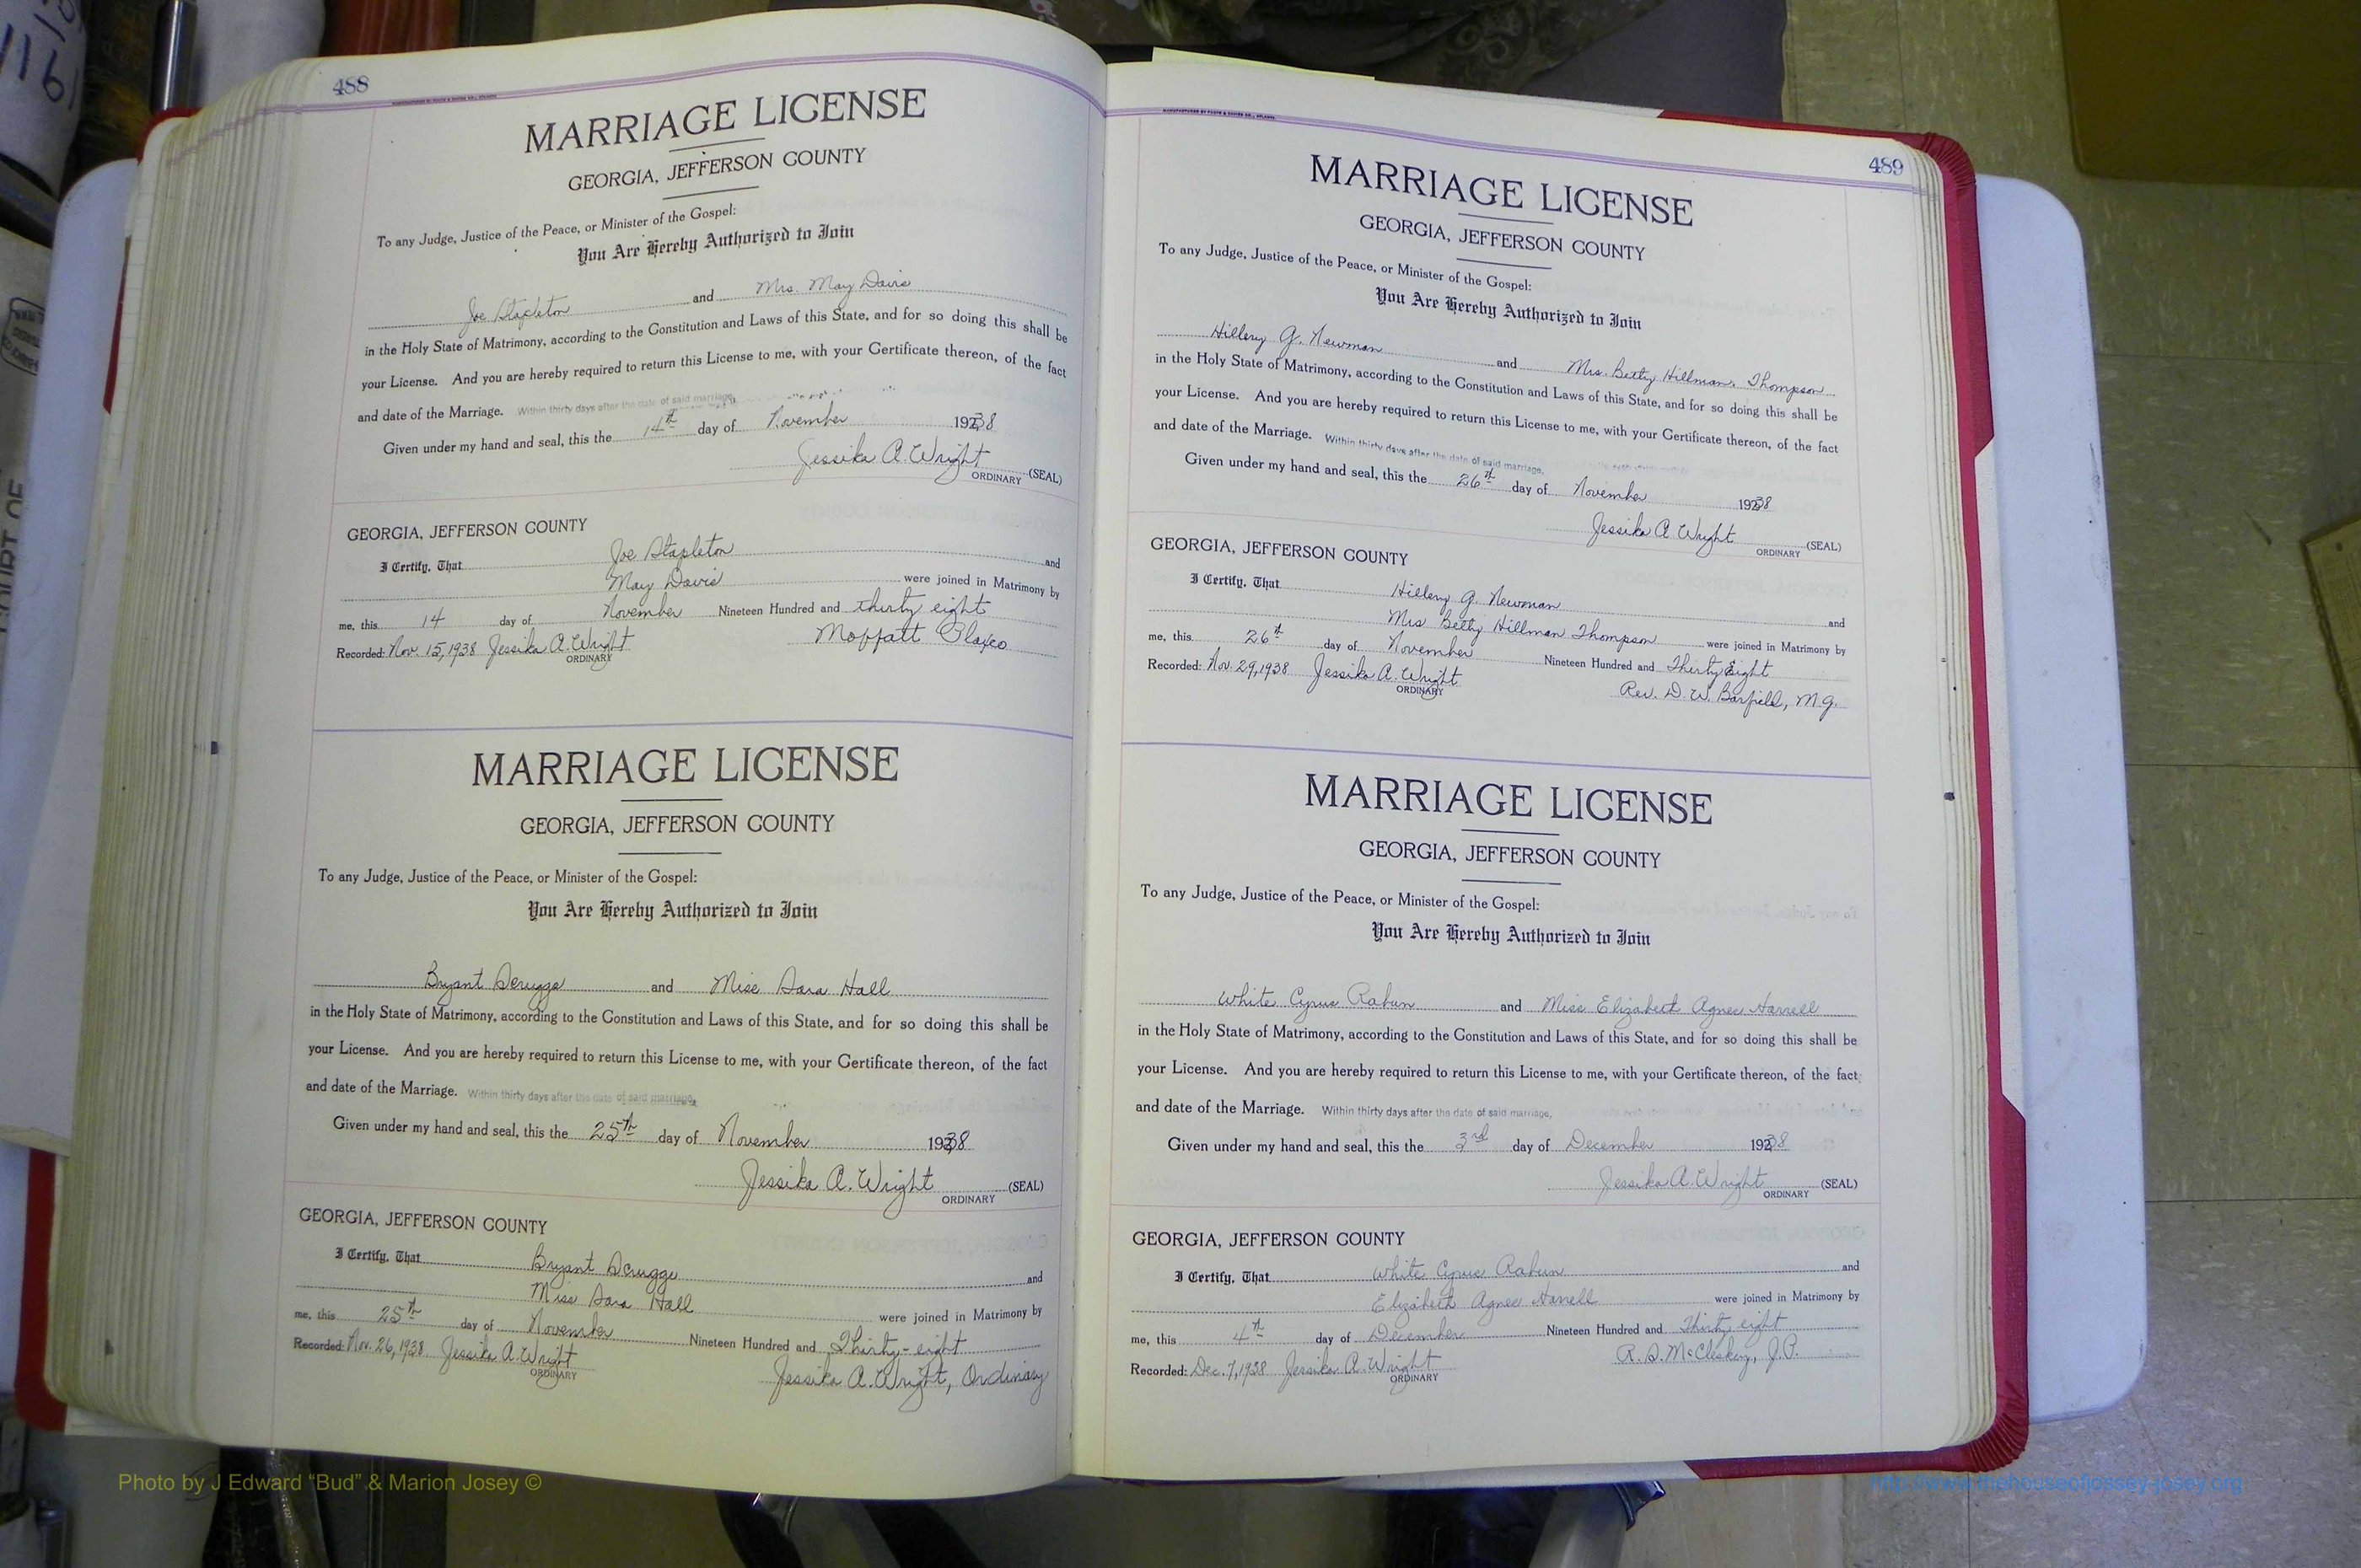 488
MARRIAGE LICENSE
GEORGIA, JEFFERSON COUNTY
To any Judge, Justice of the Peace, or Minister of the Gospel:
You Are Hereby Authorized to Join
Joe Stapleton and Mrs. May Davis
in the Holy State of Matrimony, according to the Constitution and Laws of this State, and for so doing this shall be
your License. And you are hereby required to return this License to me, with your Certificate thereon, of the fact
and date of the Marriage. Within thirty days after the date of said marriage,
Given under my hand and seal, this the 14th day of November 1938
Jessika A. Wright (SEAL)
ORDINARY
GEORGIA, JEFFERSON COUNTY
I Certify, That Joe Stapleton and
May Davis were joined in Matrimony by
me, this 14 day of November Nineteen Hundred and thirty eight
Recorded: Nov. 15, 1938 Jessika A. Wright Moffatt
ORDINARY
MARRIAGE LICENSE
GEORGIA, JEFFERSON COUNTY
To any Judge, Justice of the Peace, or Minister of the Gospel:
You Are Hereby Authorized to Join
Bryant Scruggs and Miss Sara Hall
in the Holy State of Matrimony, according to the Constitution and Laws of this State, and for so doing this shall be
your License. And you are hereby required to return this License to me, with your Certificate thereon, of the fact
and date of the Marriage. Within thirty days after the date of said marriage,
Given under my hand and seal, this the 25th day of November 1938
Jessika A. Wright (SEAL)
ORDINARY
GEORGIA, JEFFERSON COUNTY
I Certify, That Bryant Scruggs and
Miss Sara Hall were joined in Matrimony by
me, this 25th day of November Nineteen Hundred and Thirty-eight
Recorded: Nov. 26, 1938 Jessika A. Wright Jessika A. Wright, Ordinary
ORDINARY
489
MARRIAGE LICENSE
GEORGIA, JEFFERSON COUNTY
To any Judge, Justice of the Peace, or Minister of the Gospel:
You Are Hereby Authorized to Join
Hillery G. Newman and Mrs. Betty Hillman Thompson
in the Holy State of Matrimony, according to the Constitution and Laws of this State, and for so doing this shall be
your License. And you are hereby required to return this License to me, with your Certificate thereon, of the fact
and date of the Marriage. Within thirty days after the date of said marriage,
Given under my hand and seal, this the 26th day of November 1938
Jessika A. Wright (SEAL)
ORDINARY
GEORGIA, JEFFERSON COUNTY
I Certify, That Hillery G. Newman and
Mrs Betty Hillman Thompson were joined in Matrimony by
me, this 26th day of November Nineteen Hundred and Thirty Eight
Recorded: Nov. 29, 1938 Jessika A. Wright Rev. D. W. Barfield, M.G.
ORDINARY
MARRIAGE LICENSE
GEORGIA, JEFFERSON COUNTY
To any Judge, Justice of the Peace, or Minister of the Gospel:
You Are Hereby Authorized to Join
White Cyrus Rabun and Miss Elizabeth Agnes Harrell
in the Holy State of Matrimony, according to the Constitution and Laws of this State, and for so doing this shall be
your License. And you are hereby required to return this License to me, with your Certificate thereon, of the fact
and date of the Marriage. Within thirty days after the date of said marriage,
Given under my hand and seal, this the 3rd day of December 1938
Jessika A. Wright (SEAL)
ORDINARY
GEORGIA, JEFFERSON COUNTY
I Certify, That White Cyrus Rabun and
Elizabeth Agnes Harrell were joined in Matrimony by
me, this 4th day of December Nineteen Hundred and Thirty eight
Recorded: Dec. 7, 1938 Jessika A. Wright R. S. McCleskey, J.P.
ORDINARY
Photo by J Edward “Bud” & Marion Josey ©
http://www.thehouseofjossey-josey.org